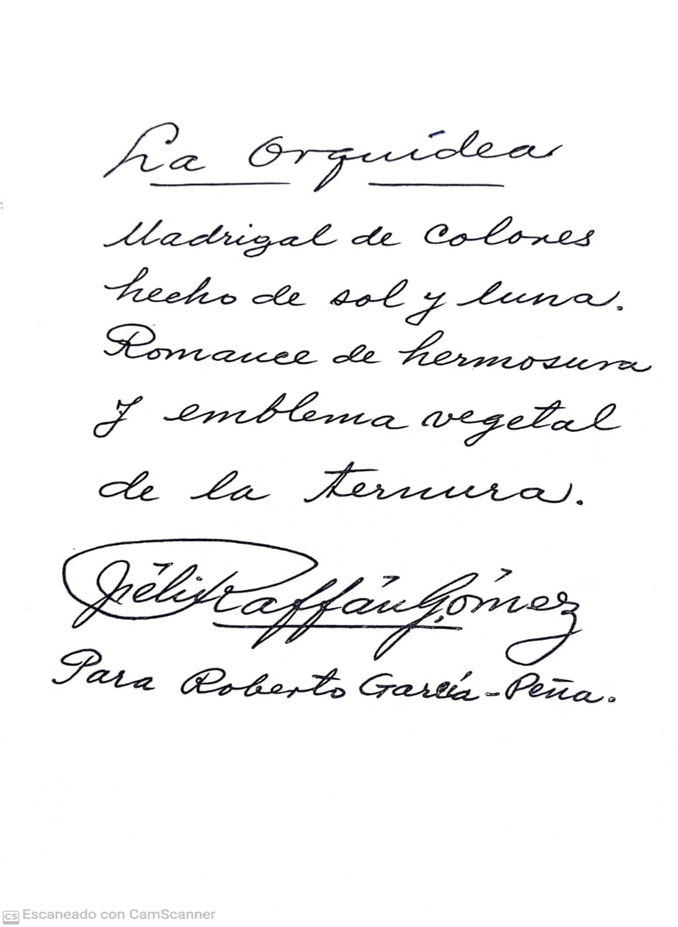 La Orquídea
Madrigal de colores
hecho de sol y luna.
Romance de hermosura
y emblema vegetal
de la ternura.
Félix Raffán Gómez
Para Roberto García-Peña.
CS Escaneado con CamScanner